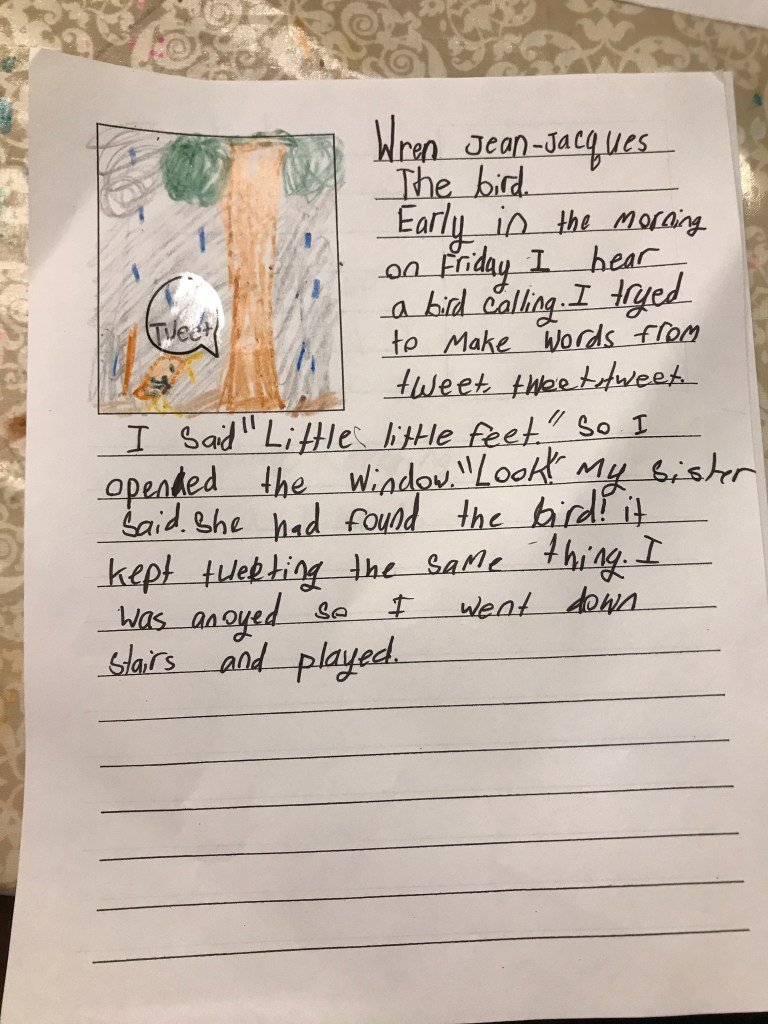 Wren Jean-Jacques
The bird.
Early in the morning
on Friday I hear
a bird calling. I tryed
to make words from
tweet, tweet, tweet.
Tweet
I said "Little, little feet." So I
opended the window. "Look!" My sister
said. She had found the bird! it
kept tweeting the same thing. I
was anoyed so I went down
stairs and played.